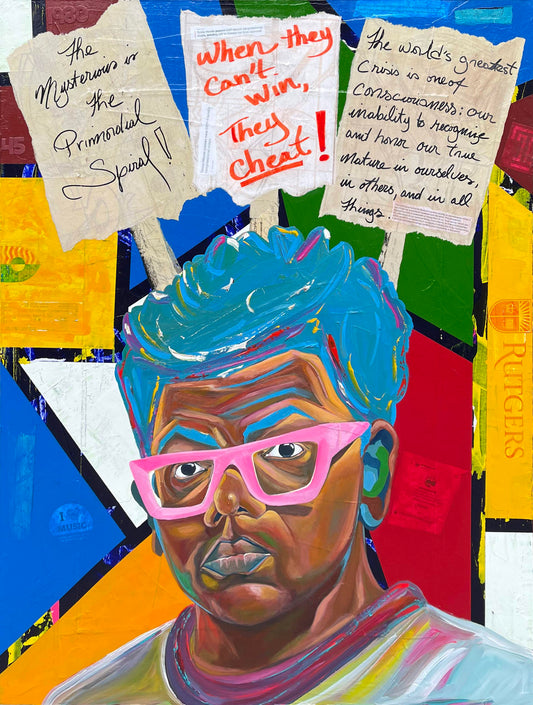 The
Mysterious is
the
Primordial
Spiral!
When they
can't
win,
They
cheat!
the world's greatest
crisis is one of
consciousness: our
inability to recognize
and honor our true
nature in ourselves,
in others, and in all
things.
45
RUTGERS
I
MUSIC